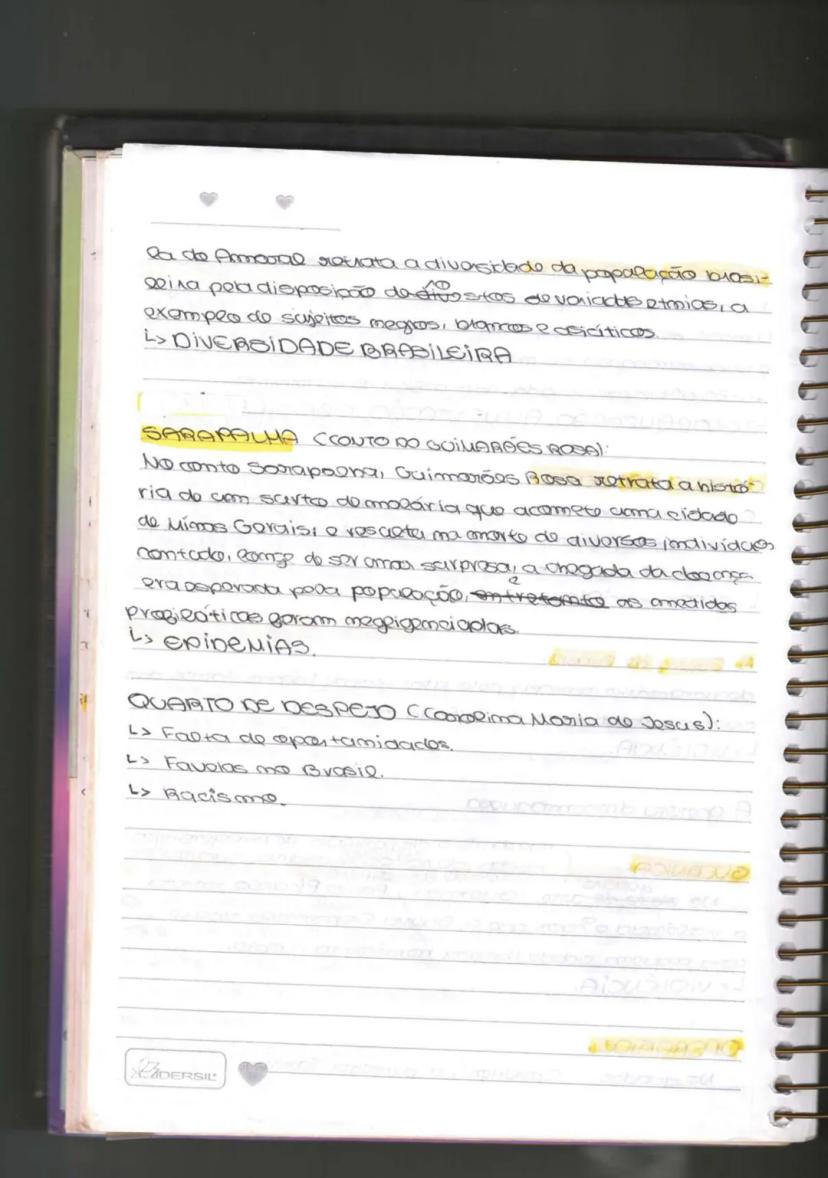 la do Amaral retrata a diversidade da população brasi-
leira pela disposição de rostos de variadas etnias, a
exemplo de sujeitos negros, brancos e asiáticos.
↳ DIVERSIDADE BRASILEIRA
SARAPALHA (CONTO DO GUIMARÃES ROSA):
No conto Sarapalha, Guimarães Rosa retrata a histó-
ria de um surto de malária que acomete uma cidade
de Minas Gerais, e resulta na morte de diversos indivíduos
contudo, longe de ser uma surpresa, a chegada da doença
era esperada pela população, e entretanto as medidas
profiláticas foram negligenciadas.
↳ EPIDEMIAS.
QUARTO DE DESPEJO (Carolina Maria de Jesus):
↳ Falta de oportunidades.
↳ Favelas no Brasil.
↳ Racismo.